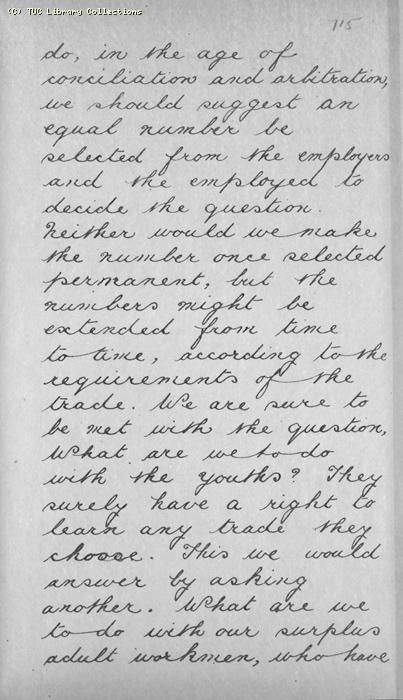 (C) TUC Library Collections
115
do, in the age of
conciliation and arbitration,
we should suggest an
equal number be
selected from the employers
and the employed to
decide the question.
Neither would we make
the number once selected
permanent, but the
numbers might be
extended from time
to time, according to the
requirements of the
trade. We are sure to
be met with the question,
What are we to do
with the youths? They
surely have a right to
learn any trade they
choose. This we would
answer by asking
another. What are we
to do with our surplus
adult workmen, who have